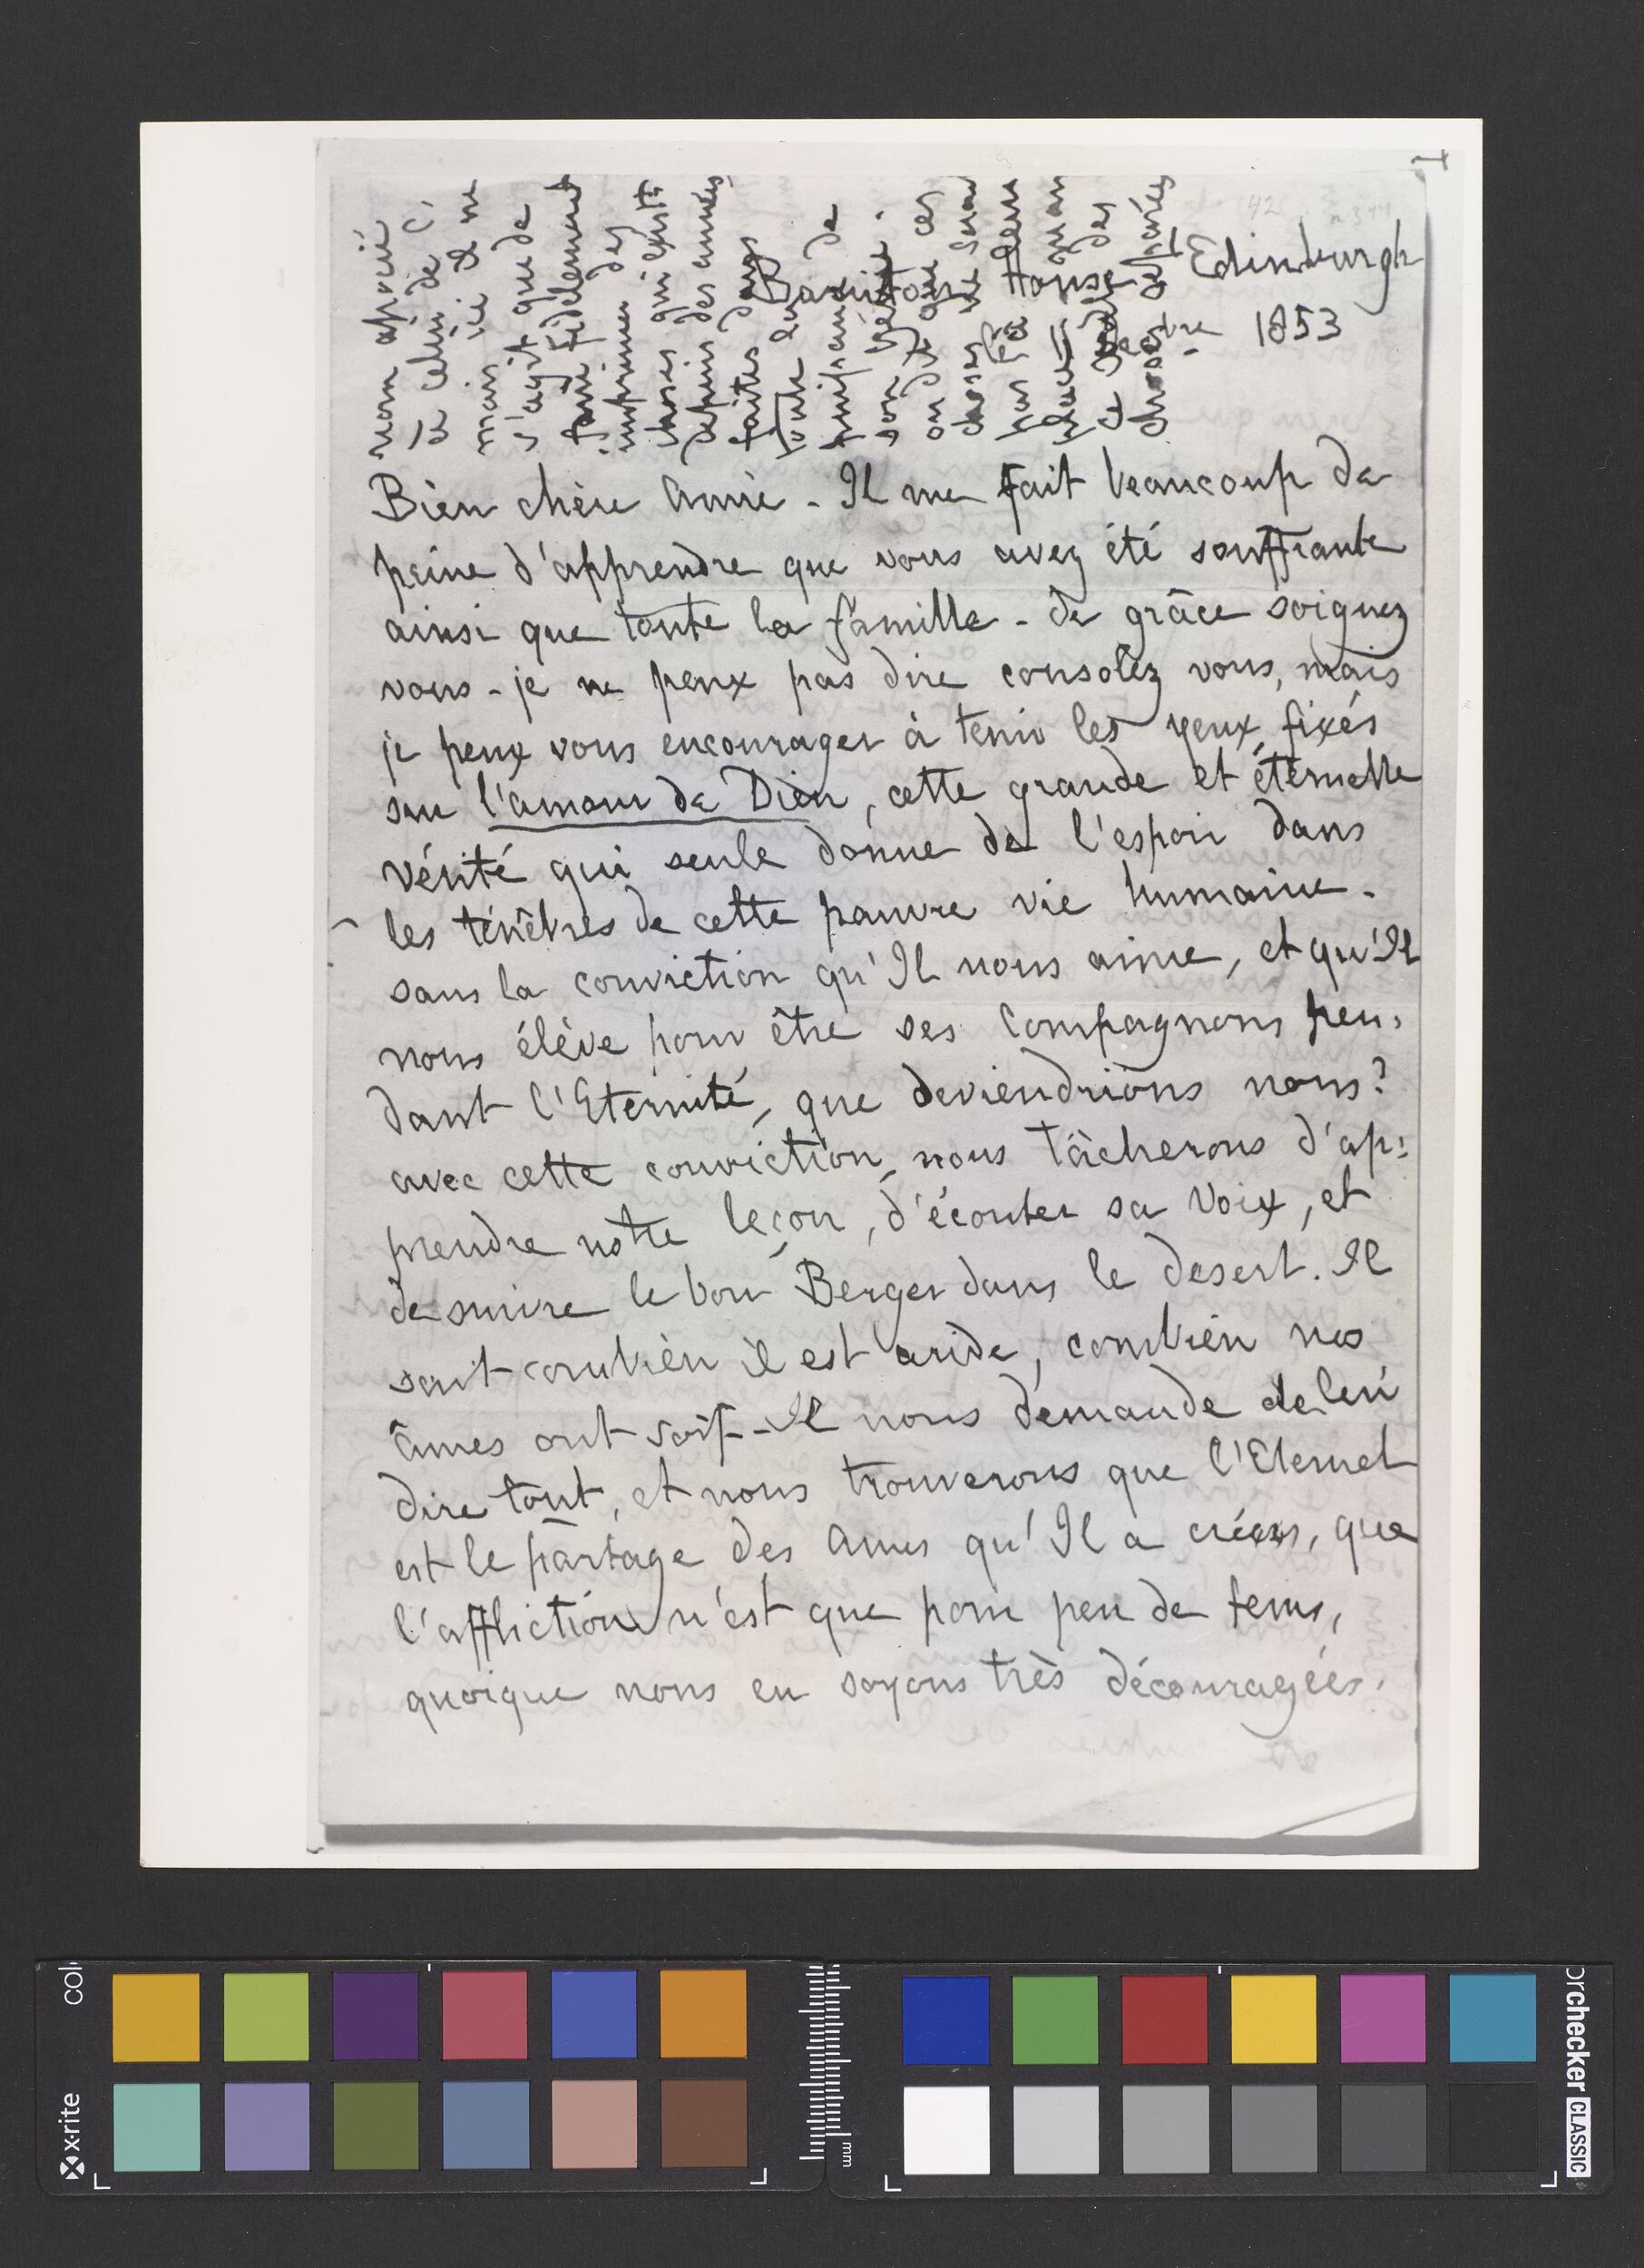 1
Barnton House Edinburgh
1853
Bien chère Amie - Il me fait beaucoup de
peine d'apprendre que vous avez été souffrante
ainsi que toute la famille - de grâce soignez
vous - je ne peux pas dire consolez vous, mais
je peux vous encourager à tenir les yeux fixés
sur l'amour de Dieu, cette grande et éternelle
vérité qui seule donne de l'espoir dans
les ténèbres de cette pauvre vie humaine -
sans la conviction qu'Il nous aime, et qu'Il
nous élève pour être ses compagnons pen:
dant l'Eternité, que deviendrions nous?
avec cette conviction, nous tâcherons d'ap:
prendre notre leçon, d'écouter sa voix, et
de suivre le bon Berger dans le desert. Il
sait combien il est aride, combien nos
âmes ont soif - Il nous demande de lui
dire tout, et nous trouverons que l'Eternel
est le partage des Ames qu'Il a créées, que
l'affliction n'est que pour peu de tems,
quoique nous en soyons très découragées.
non apprécié
à celui de
mais
s'agit que de
faire fidèlement
imprimer des
choses qui exist:
depuis des années
faites dans
toute
puissance de
son
on dit que ces
choses
par
ce des
choses
colorchecker CLASSIC
x-rite
mm